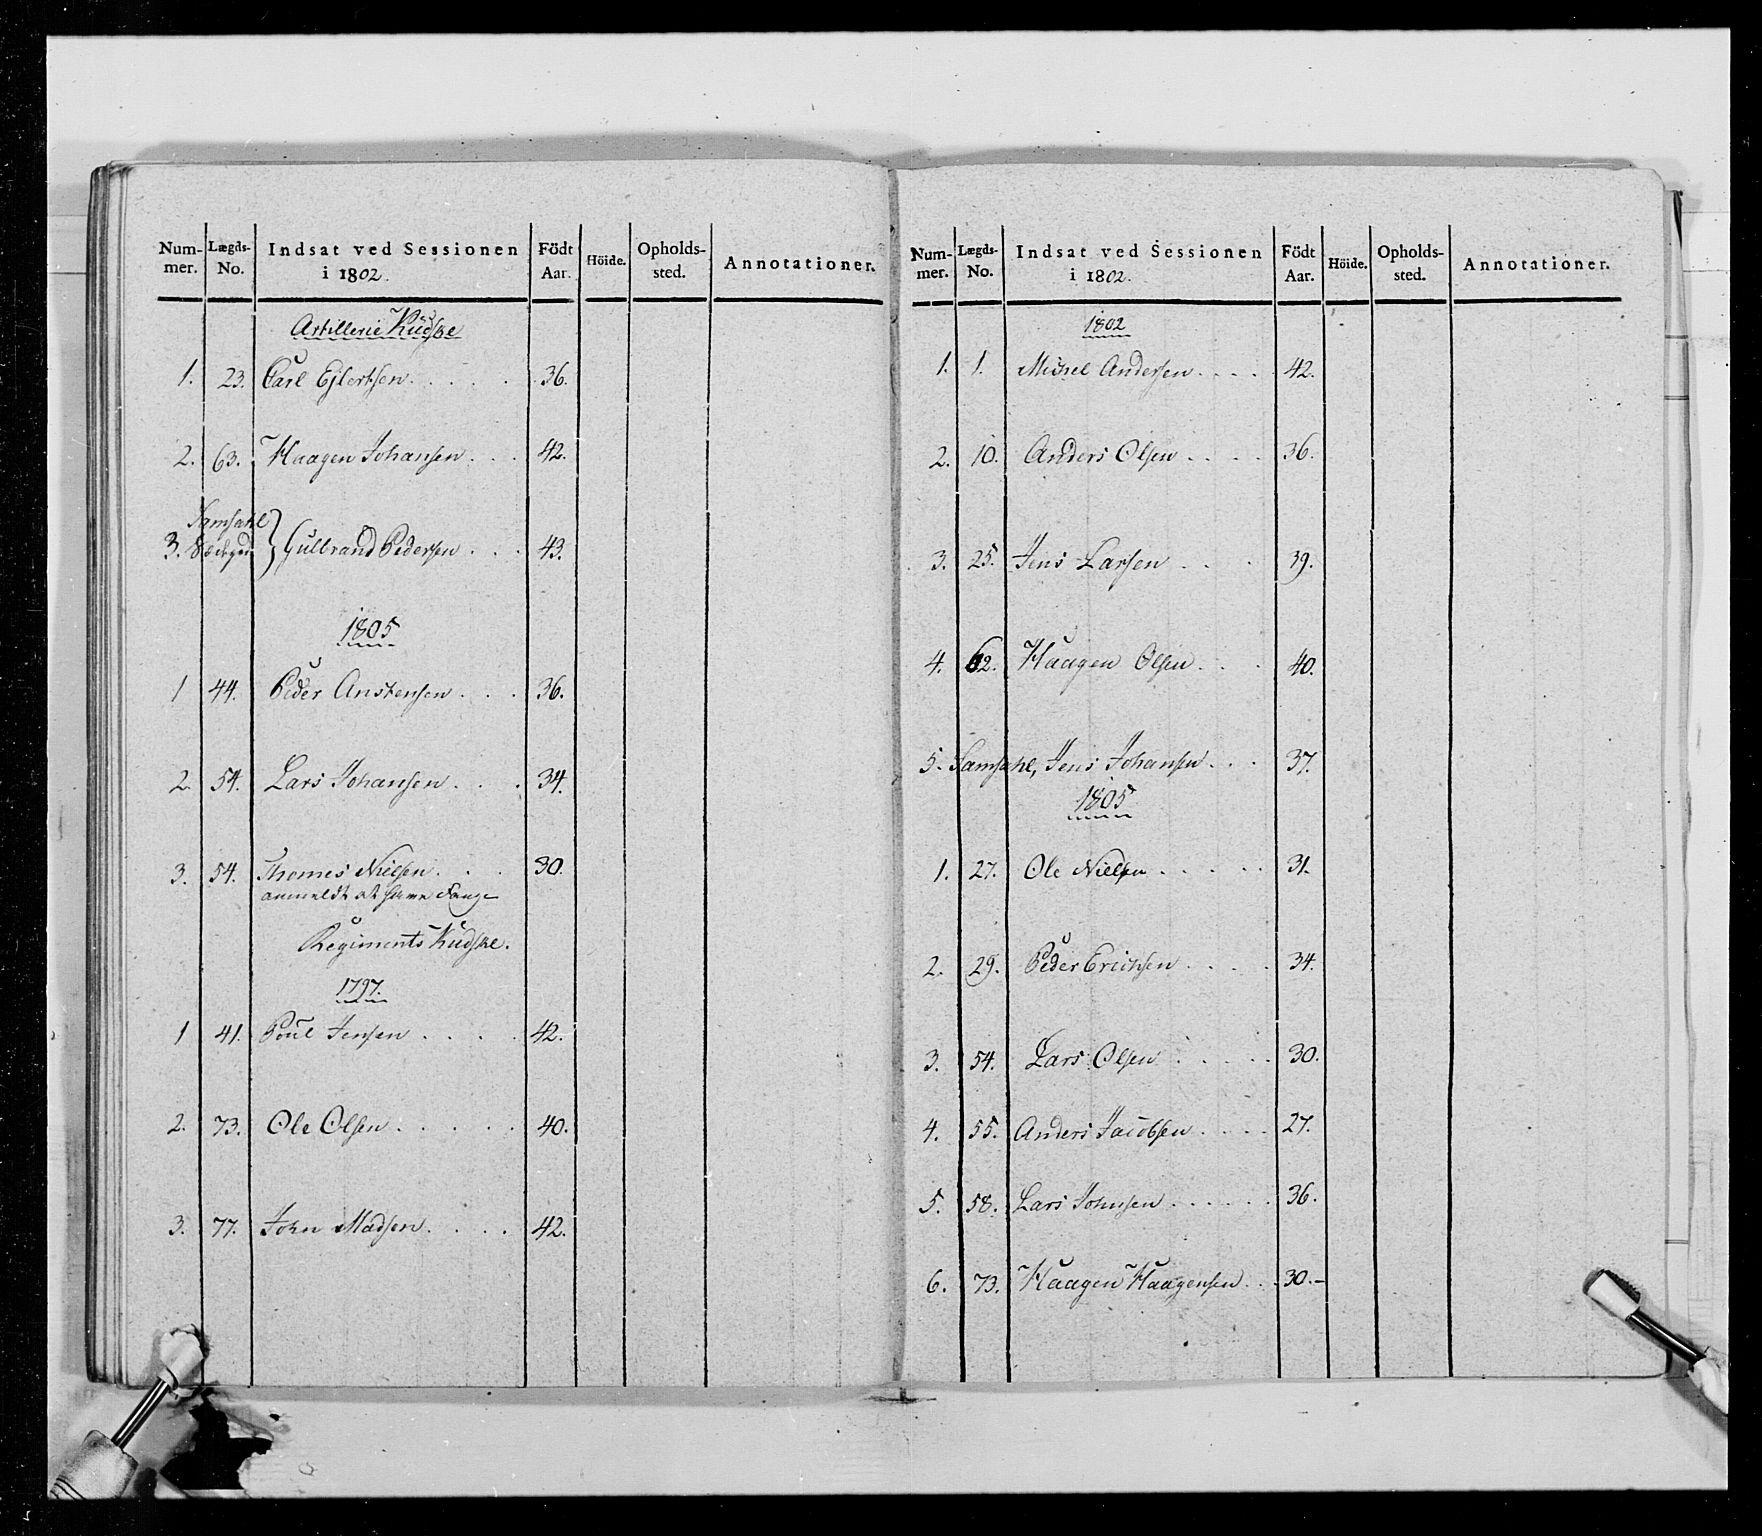 Num- Lægds- Indsat ved Sessionen Födt Höide. Opholds- Annotationer.
mer. No. i 1802. Aar. sted.
Artillerie Kudske
1. 23. Carl Ejlertsen. . . . . . 36.
2. 63. Haagen Johansen. . . 42.
Samsahl
3. Gulbrand Pedersen . . . 43.
1805
1 44. Peder Anstensen . . . 36.
2. 54. Lars Johansen . . . 34.
3. 54. Thomes Nielsen. . . 30.
anmeldt at have
Regiments Kudske.
1797.
1 41. Poul Jensen . . . . 42.
2. 73. Ole Olsen . . . . . 40.
3. 77. John Madsen. . . . 42.
Num- Lægds- Indsat ved Sessionen Födt Höide. Opholds- Annotationer.
mer. No. i 1802. Aar. sted.
1802
1. 1. Michel Andersen . . . . 42.
2. 10. Anders Olsen . . . . 36.
3. 25. Jens Larsen . . . 39.
4. 62. Haagen Olsen . . . 40.
5. Samsahl, Jens Johansen . . . 37.
1805
1. 27. Ole Nielsen . . . . . 31.
2. 29. Peder Erichsen . . . . 34.
3. 54. Lars Olsen . . . . . 30.
4. 55. Anders Jacobsen . . . . 27.
5. 58. Lars Johnsen . . . . . . 36.
6. 73. Haagen Haagensen . . . 30.–